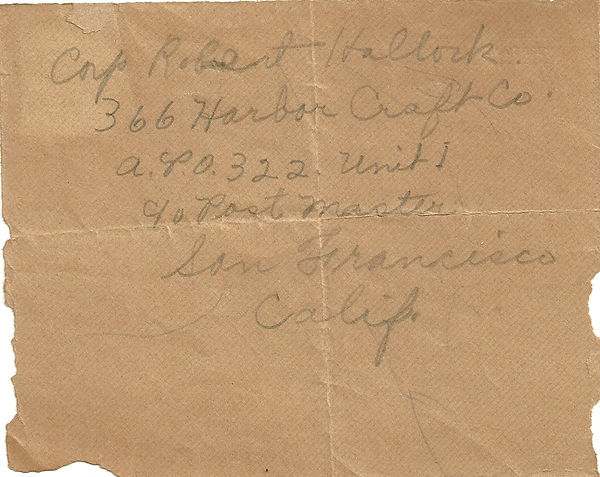 Corp Robert Hallock.
366 Harbor Craft Co.
A.P.O. 322. Unit 1
c/o Post Master
San Francisco
Calif.